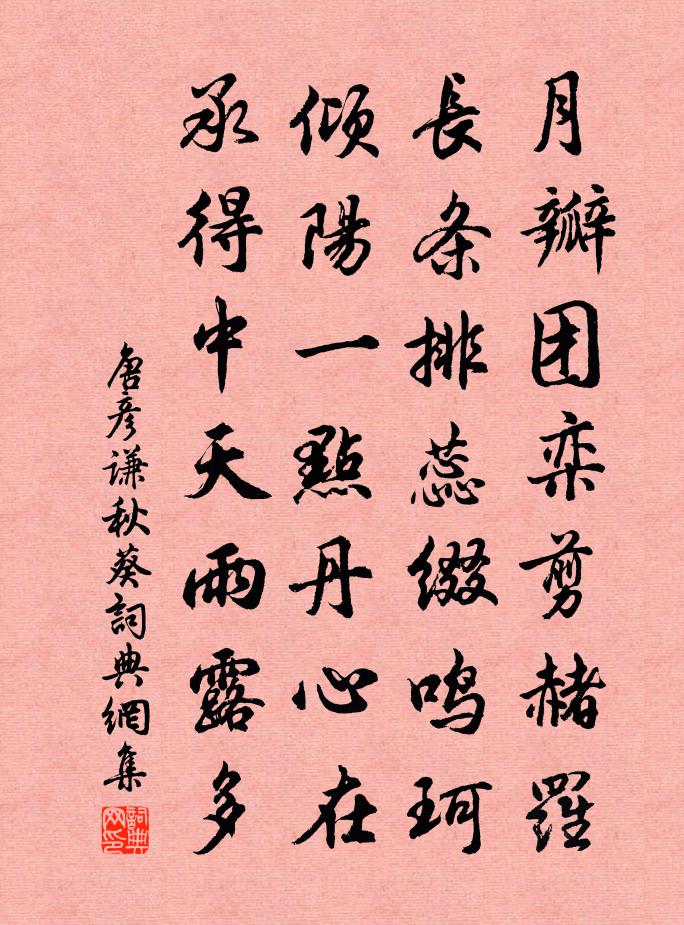 月瓣团栾剪赭羅
長条排蕊綴鳴珂
傾陽一點丹心在
承得中天雨露多
唐彦谦秋葵詞典網集
詞典网印